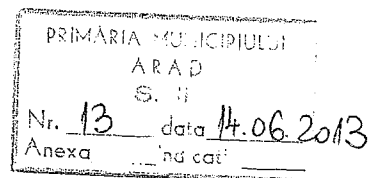 PRIMĂRIA MUNICIPIULUI
ARAD
S.
Nr. 13 data 14.06.2013
Anexa